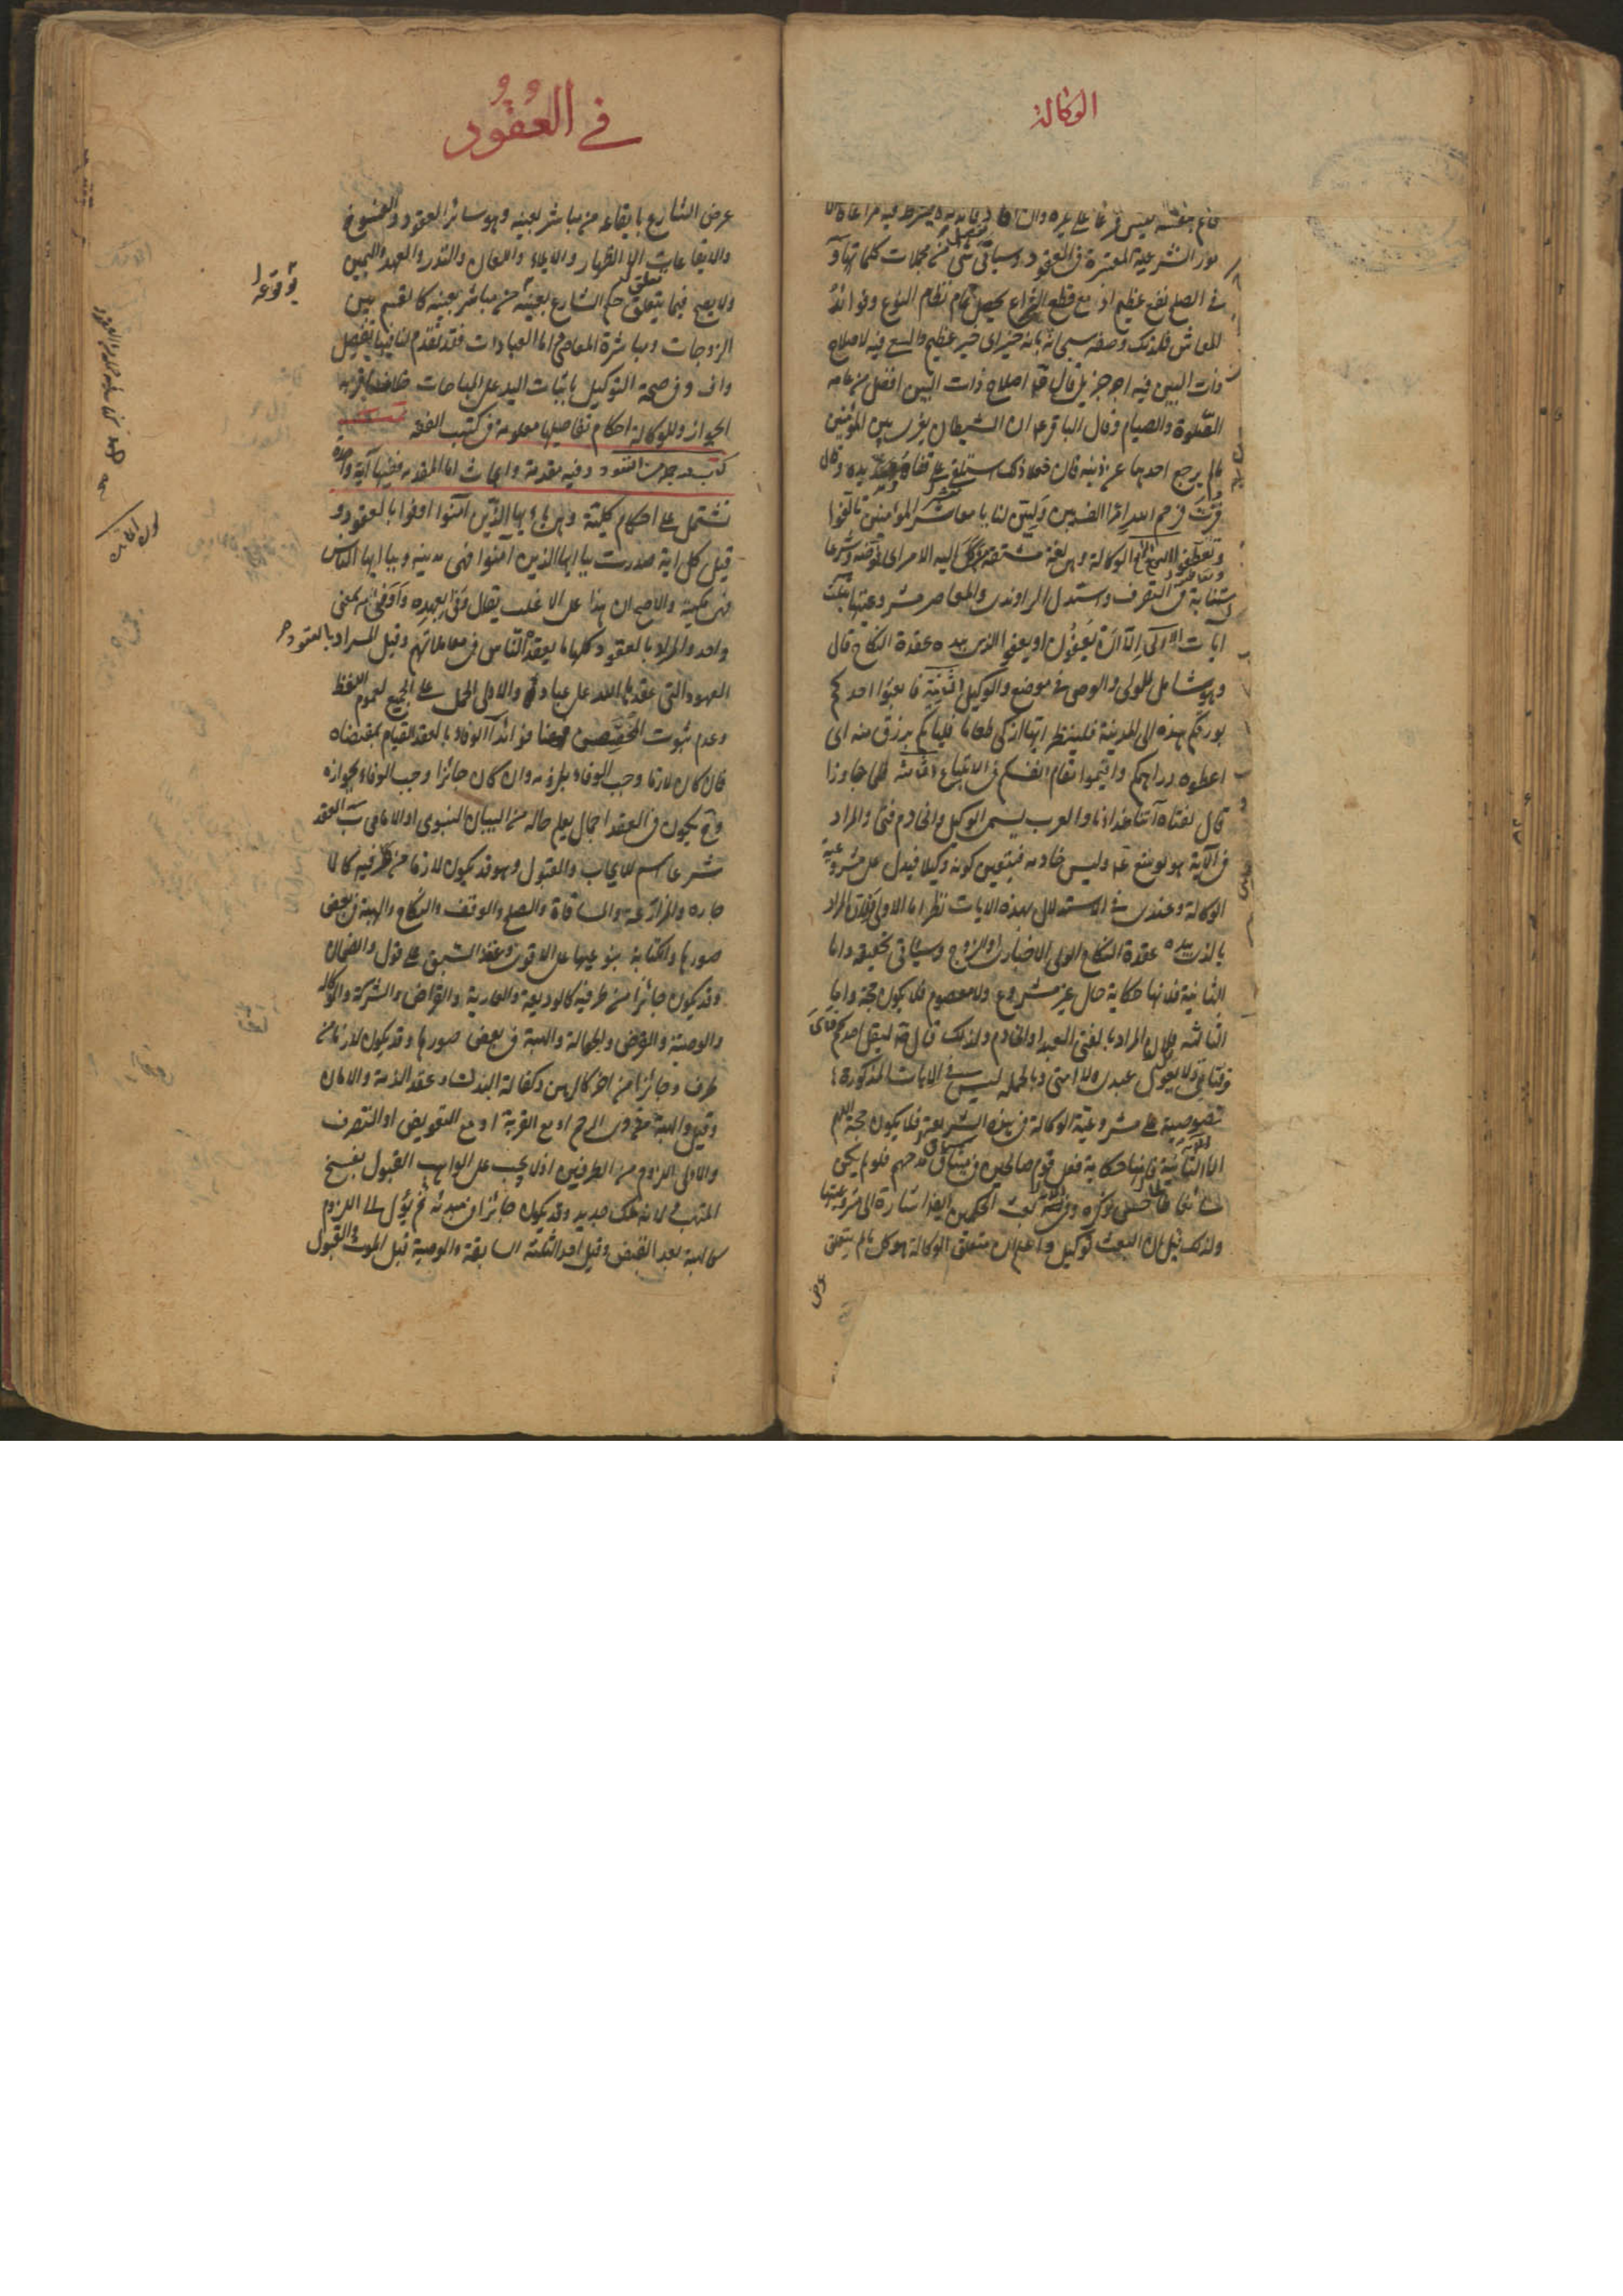 الوكالة
قائم بنفسه ليس فرعا على غيره
مور الشرعية المعتبرة في العقود وسيأتي شيء من مجملات كلماتها و
في الصلح نفع عظيم اذ مع قطع النزاع يحصل تمام نظام النوع وفوائد
المعاش فلذلك وصفه سبحانه بانه خير اى خير عظيم والسعى فيه لاصلاح
ذات البين فيه اجر جزيل قال اصلاح ذات البين افضل من عامة
الصلوة والصيام وقال الباقر ان الشيطان يغرى بين المؤمنين
ما لم يرجع احدهما عن دينه فاذا فعلا ذلك استلقى على قفاه وقال
فزت فرحم الله امرا الف بين وليين لنا يا معاشر المؤمنين تآلفوا
وتعاطفوا الوكالة وهي لغة مشتقة من وكل اليه الامر اى فوضه وشرعا
استنابة في التصرف واستدل الراوندى والمعاصر على مشروعيتها بثلث
آيات الاولى الا ان يعفون او يعفو الذى بيده عقدة النكاح قال
وهو شامل للولى والوصى في موضع والوكيل الثانية فابعثوا احدكم
بورقكم هذه الى المدينة فلينظر ايها ازكى طعاما فليأتكم برزق منه اى
اعطوه دراهمكم واقيموا مقام انفسكم في الابتياع الثالثة فلما جاوزا
قال لفتاه آتنا غداءنا والعرب يسمى الوكيل والخادم فتى والمراد
في الآية هو يوشع وليس خادمه فيتعين كونه وكيلا فيدل على مشروعية
الوكالة وعندى في الاستدلال بهذه الايات نظر اما الاولى فلان المراد
بالذى بيده عقدة النكاح الولى الاجبارى او الزوج وسيأتى تحقيقه واما
الثانية فلانها حكاية حال غير مشروع ولا معصوم فلا يكون حجة واما
الثالثة فلان المراد بالفتى العبد او الخادم ولذلك قال ليقل احدكم فتاى
وفتاتى ولا يقول عبدى ولا امتى وبالجملة ليس في الايات المذكورة
تصوصية على مشروعية الوكالة في هذه الشريعة فلا يكون حجة اللهم
الا الثانية فانها حكاية فعل قوم صالحين في سياق مدحهم فلو لم يكن
سائغا لما حسن ذكره وفي بعث الحكمين ايضا اشارة الى مشروعيتها
ولذلك قيل ان البعث توكيل واعلم ان متعلق الوكالة هو كل ما لم يتعلق
غرض
في العقود
غرض الشارع بايقاعه من مباشر بعينه وهو سائر العقود والفسوخ
والايقاعات الا الظهار والايلاء واللعان والنذور والعهد واليمين
ولا يصح فيما يتعلق حكم الشارع بعينه من مباشر بعينه كالقسم بين
الزوجات ومباشرة المعاصى اما العبادات فقد تقدم لنا فيها تفصيل
واف وفي صحة التوكيل باثبات اليد على المباحات خلاف اقربه
الجواز وللوكالة احكام تفاصيلها معلومة في كتب الفقه
كتاب فيه جملة من العقود وفيه مقدمة وابحاث اما المقدمة ففيها آية واحدة
تشتمل على احكام كلية وهى يا ايها الذين آمنوا اوفوا بالعقود و
قيل كل اية صدرت بيا ايها الذين امنوا فهى مدنية وبيا ايها الناس
فهى مكية والاصح ان هذا على الاغلب يقال وفى بعهده واوفى به بمعنى
واحد والمراد بالعقود كلها ما يعقده الناس في معاملاتهم وقيل المراد بالعقود
العهود التى عقدها الله على عباده والاولى الحمل على الجميع لعموم اللفظ
وعدم ثبوت المخصص وهنا فوائد آ الوفاء بالعقد القيام بمقتضاه
فان كان لازما وجب الوفاء بلزومه وان كان جائزا وجب الوفاء بجوازه
وح يكون في العقد اجمال يعلم حاله من البيان النبوى او الامامى ب العقد
شرعا اسم للايجاب والقبول وهو قد يكون لازما من طرفيه كالا
جارة والمزارعة والمساقاة والصلح والوقف والنكاح والهبة في بعض
صورها والكتابة بنوعيها على الاقوى وعقد السبق على قول والضمان
وقد يكون جائزا من طرفيه كالوديعة والعارية والقراض والشركة والوكالة
والوصية والقرض والجعالة والهبة في بعض صورها وقد يكون لازما من
طرف وجائزا من اخر كالرهن وكفالة البدن وعقد الذمة والامان
وقيل والهبة من ذوى الرحم او مع القربة او مع التعويض او التصرف
والاولى اللزوم من الطرفين اذ لا يجب على الواهب القبول بفسخ
المتهب لانه ملك جديد وقد يكون جائزا في مبدئه ثم يؤل الى اللزوم
كالهبة بعد القبض وقيل احد الثلثة السابقة والوصية قبل الموت والقبول